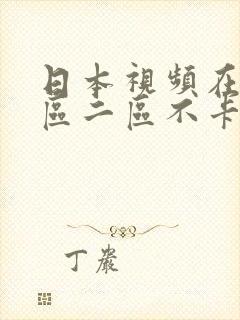 日本視頻在
區二區不卡
丁嚴